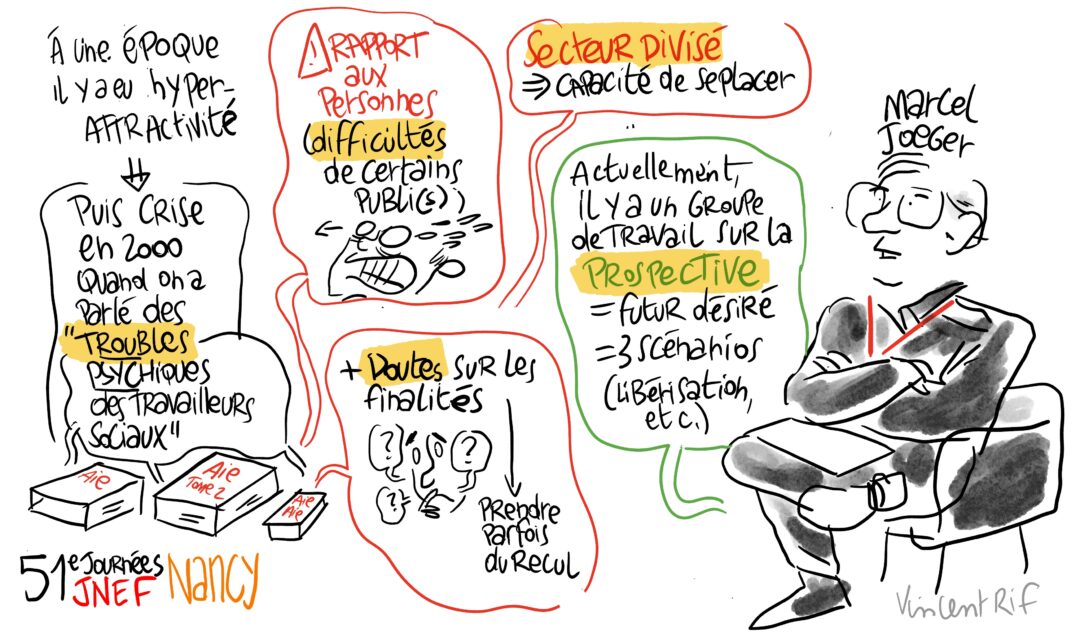 À une époque
il y a eu hyper-
ATTRActivité
Puis CRISE
en 2000
(quand on a
parlé des
"TROUBLES
PSYCHiques
des TRAVAILLEURS
Sociaux"
Aïe
Aïe
Tome 2
Aïe
Aïe
51e JOURNÉES
JNEF Nancy
! RAPPORT
aux
Personnes
(difficultés
de certains
PUBLi(s))
+ Doutes SUR LES
finalités
?
?
?
PRendre
PARfois
du Recul
Secteur Divisé
⇒ CAPACité de se placer
Actuellement,
il y a un GROUPE
de TRAVAIL SUR LA
PROSPECTIVE
= futur désiré
= 3 scénarios
(Libérisation,
etc.)
Marcel
Joeger
Vincent Rif